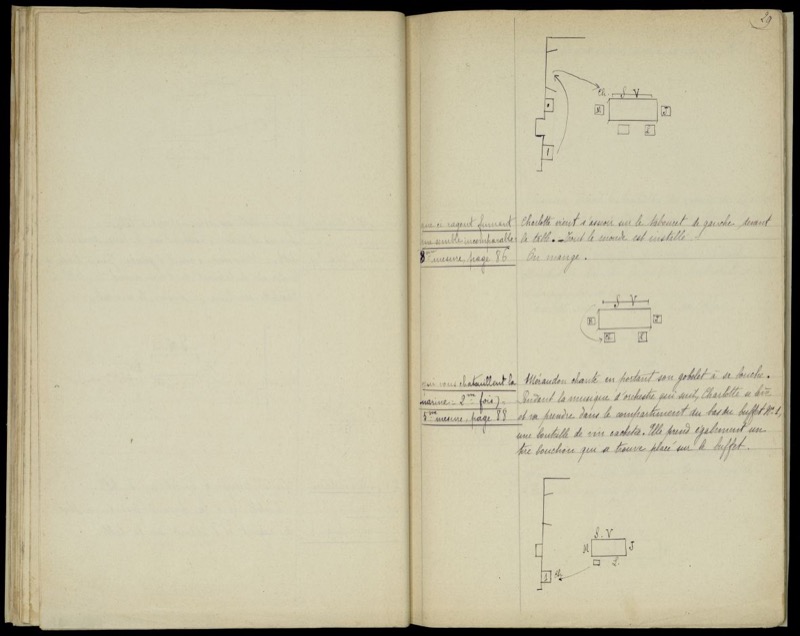 29
S V
Ch.
que ce ragout fumant
me semble incomparable
8me mesure, page 86
Charlotte vient s'asseoir sur le tabouret de gauche devant
la table. - Tout le monde est installé.
On mange.
S V
vous chatouillent la
narine - 2me fois) -
5me mesure, page 88
Mérandon chante en portant son gobelet à sa bouche.
Pendant la musique d'orchestre qui suit, Charlotte se lève
et va prendre dans le compartiment du bas du buffet No 1,
une bouteille de vin cachetée. Elle prend également un
tire bouchon qui se trouve placé sur le buffet.
S. V
J
1 Ch.